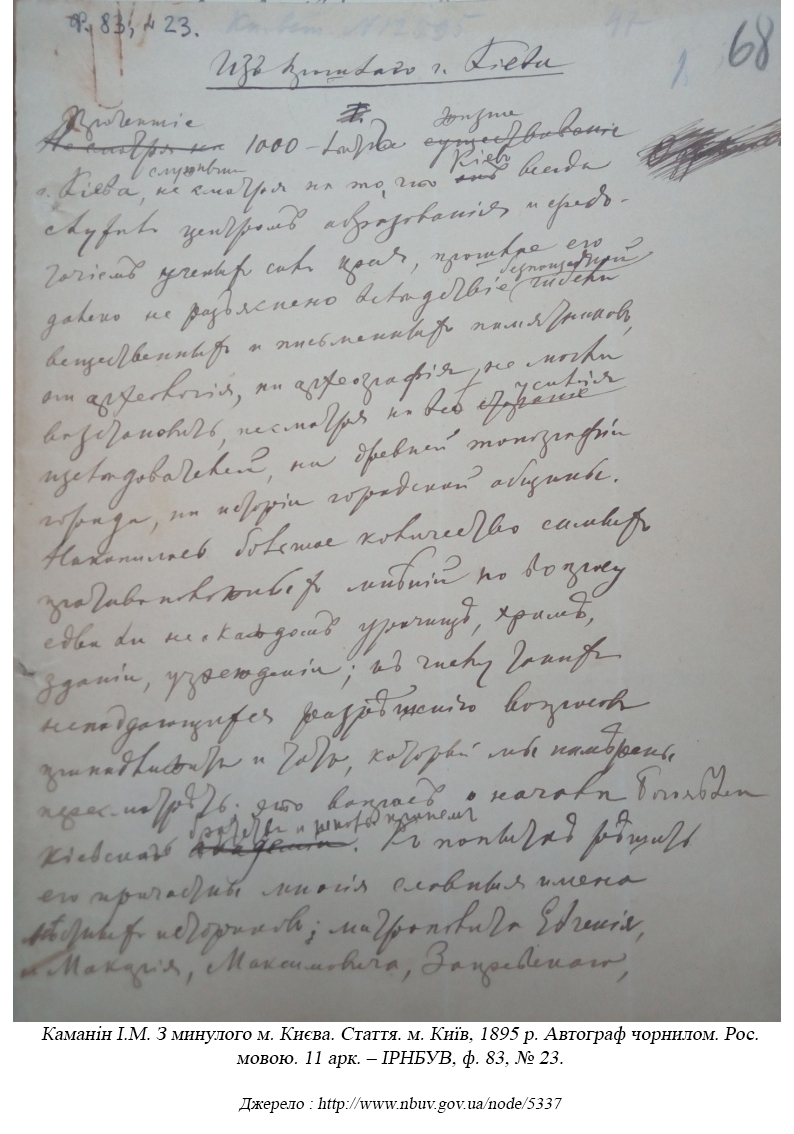 Ф. 83, № 23.
68
1.
Изъ прошлаго г. Кіева
Не смотря на 1000-лѣтіе существованіе
г. Кіева, служивш не смотря на то, что Кіевъ всегда
центромъ образованія и средо-
точіемъ ученыхъ силъ края, прошлое его
далеко не разъяснено вслѣдствіе безпощадной гибели
вещественныхъ и письменныхъ памятниковъ,
ни археологія, ни археографія не могли
возстановить, несмотря на всѣ усилія
изслѣдователей, ни древней топографіи
города, ни исторіи городской общины.
Накопилось большое количество самыхъ
противоположныхъ мнѣній по вопросу
едва ли не о каждомъ урочищѣ, храмѣ,
зданіи, учрежденіи; къ числу такихъ
неподдающихся разрѣшенію вопросовъ
принадлежитъ и тотъ, который мы намѣрены
пересмотрѣть: это вопросъ о началѣ
Кіевскихъ братства и школы при немъ. Къ попыткѣ рѣшить
его причастны многія славныя имена
мѣстныхъ историковъ; митрополита Евгенія,
и Макарія, Максимовича, Закревскаго,
Каманін І.М. З минулого м. Києва. Стаття. м. Київ, 1895 р. Автограф чорнилом. Рос.
мовою. 11 арк. – ІРНБУВ, ф. 83, № 23.
Джерело : http://www.nbuv.gov.ua/node/5337